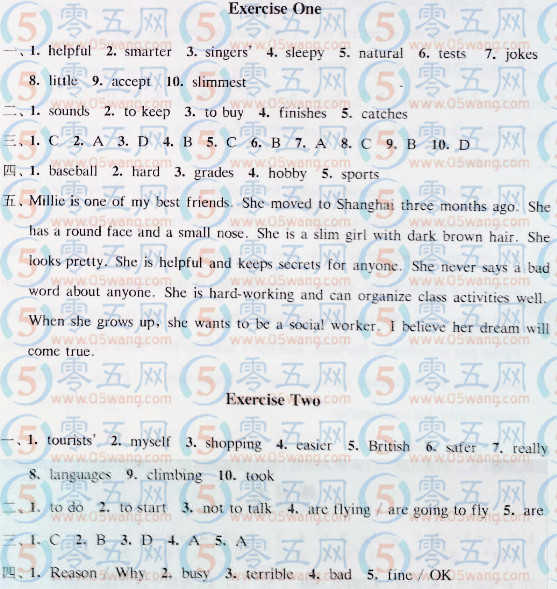 Exercise One
一、1. helpful 2. smarter 3. singers' 4. sleepy 5. natural 6. tests 7. jokes
8. little 9. accept 10. slimmest
二、1. sounds 2. to keep 3. to buy 4. finishes 5. catches
三、1. C 2. A 3. D 4. B 5. C 6. B 7. A 8. C 9. B 10. D
四、1. baseball 2. hard 3. grades 4. hobby 5. sports
五、Millie is one of my best friends. She moved to Shanghai three months ago. She
has a round face and a small nose. She is a slim girl with dark brown hair. She
looks pretty. She is helpful and keeps secrets for anyone. She never says a bad
word about anyone. She is hard-working and can organize class activities well.
When she grows up, she wants to be a social worker. I believe her dream will
come true.
Exercise Two
一、1. tourists' 2. myself 3. shopping 4. easier 5. British 6. safer 7. really
8. languages 9. climbing 10. took
二、1. to do 2. to start 3. not to talk 4. are flying / are going to fly 5. are
三、1. C 2. B 3. D 4. A 5. A
四、1. Reason / Why 2. busy 3. terrible 4. bad 5. fine / OK
零五网
www.05wang.com